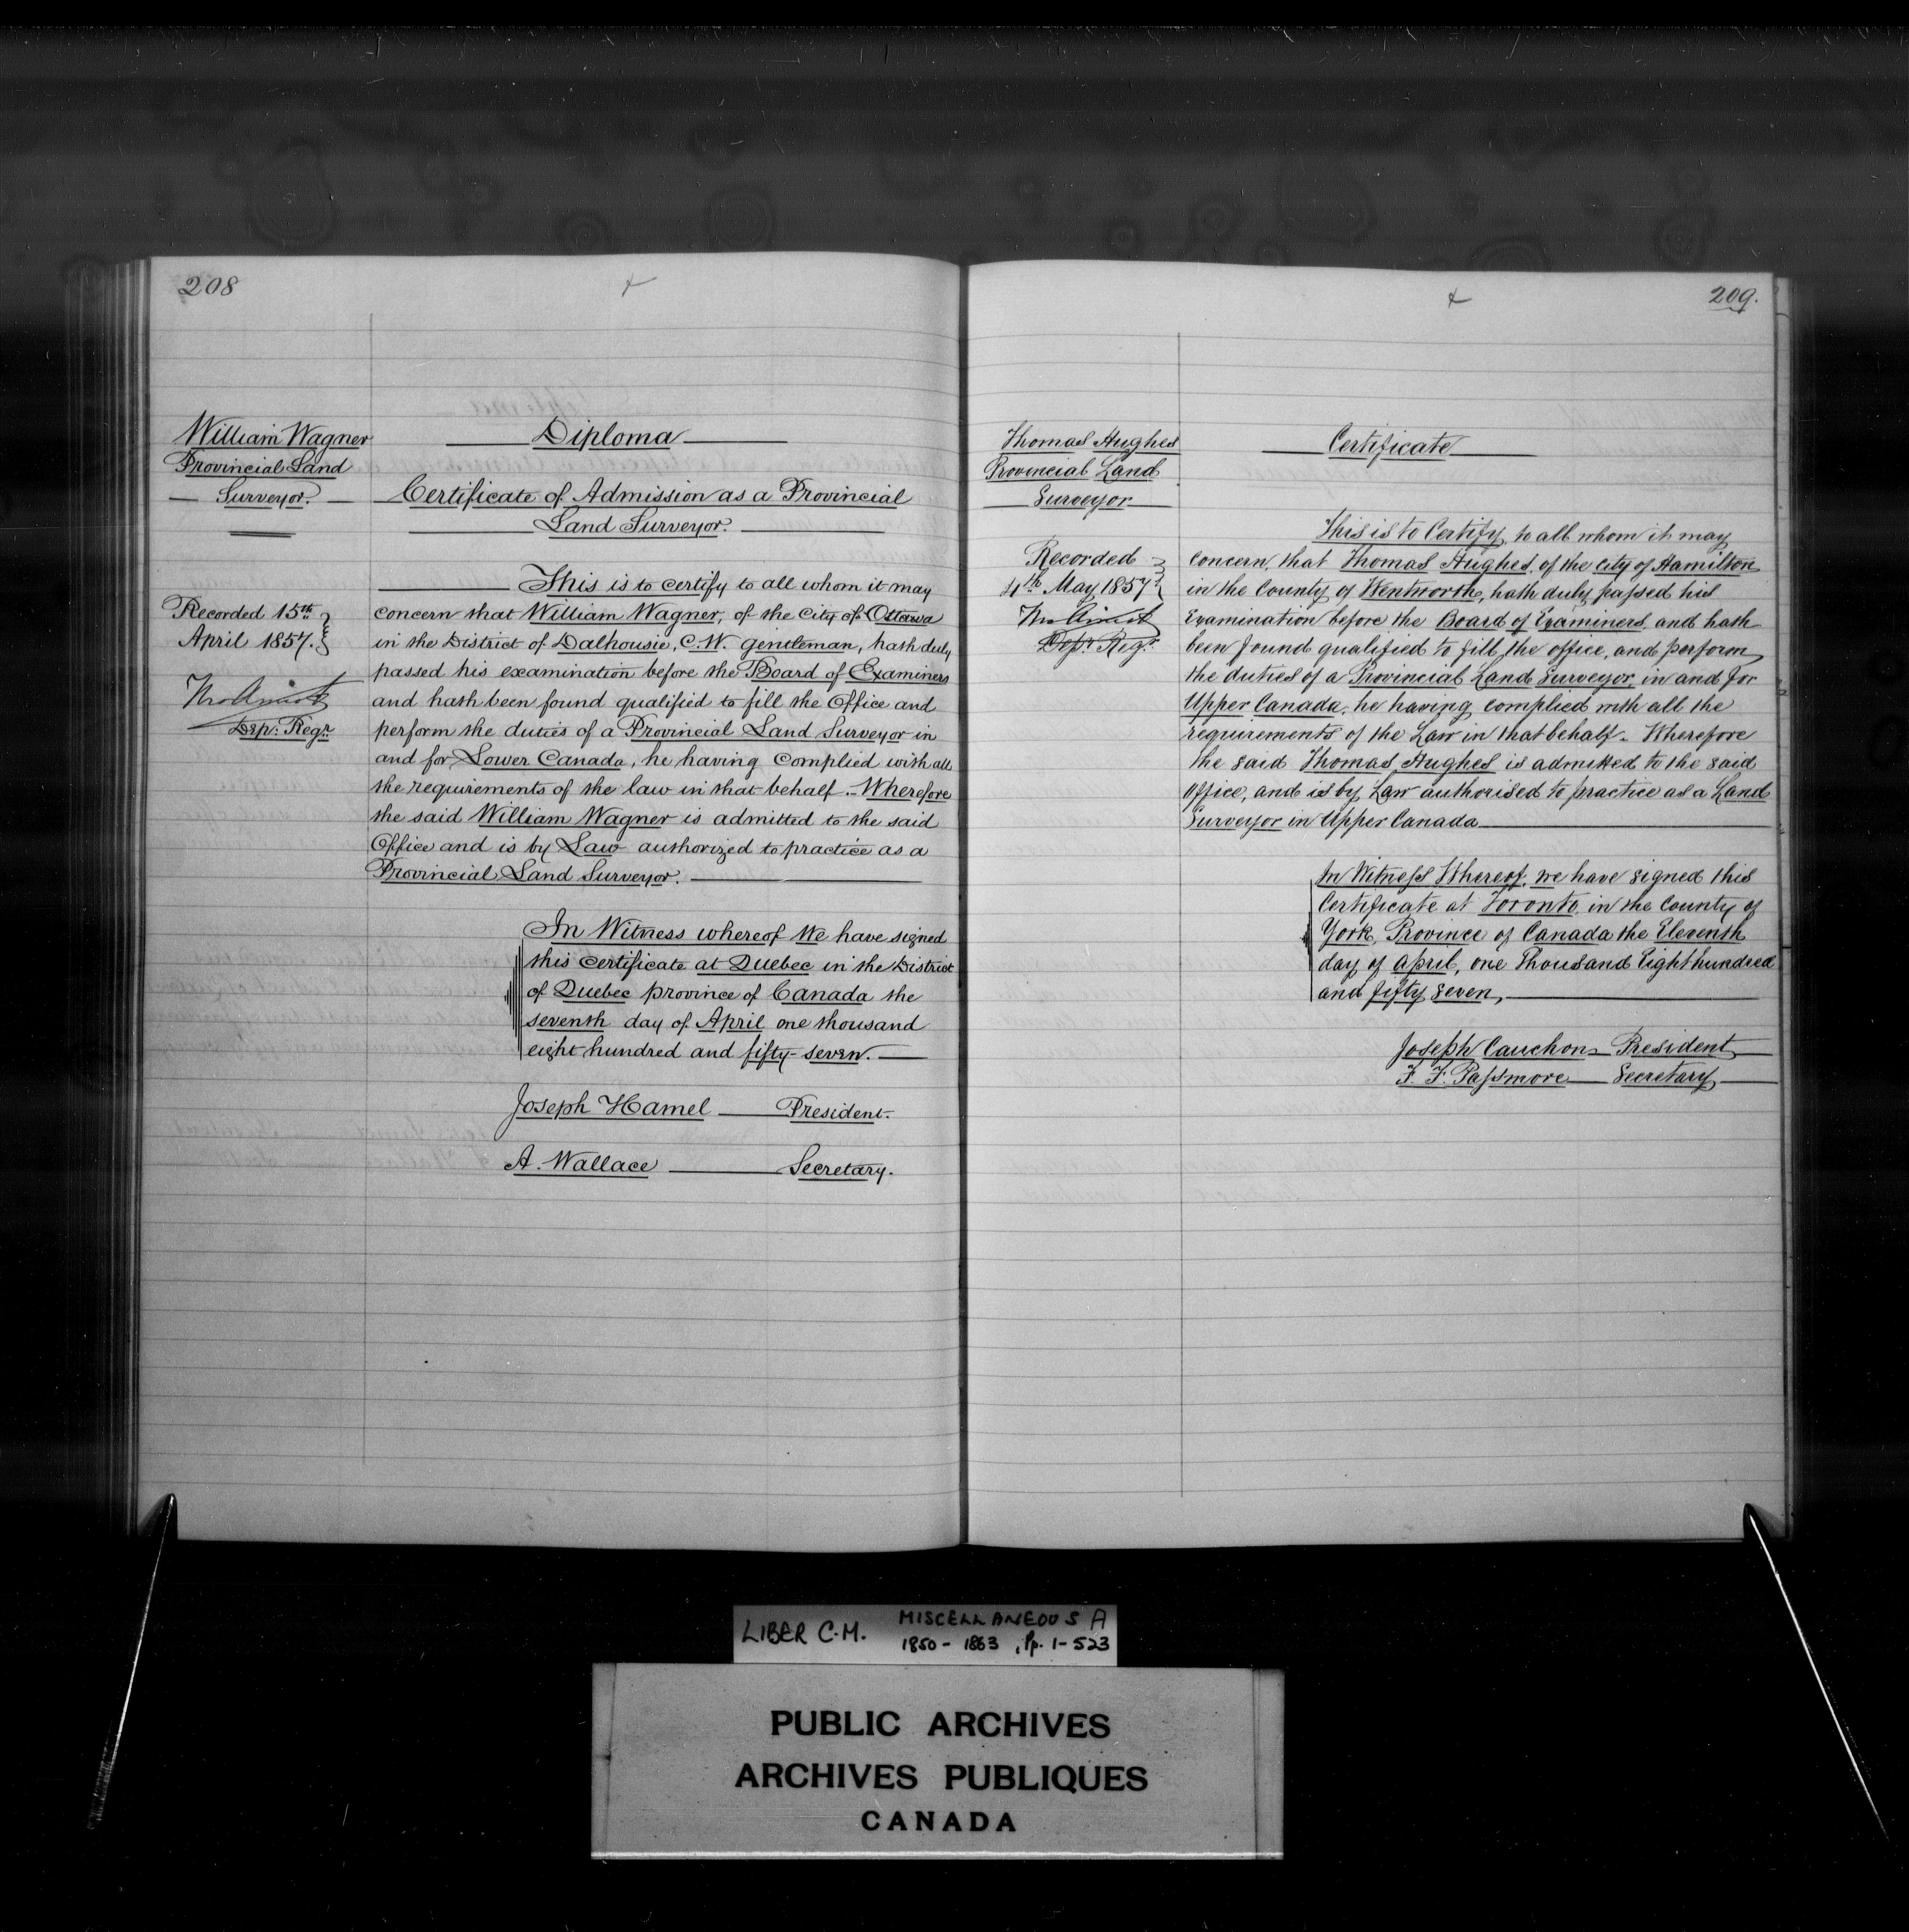 208
William Wagner
Provincial Land
Surveyor.
Recorded 15th
April 1857.
Thos Amiot
Dep: Regr
Diploma
Certificate of Admission as a Provincial
Land Surveyor.
This is to certify to all whom it may
concern that William Wagner, of the City of Ottawa
in the District of Dalhousie, C.W. gentleman, hath duly
passed his examination before the Board of Examiners
and hath been found qualified to fill the Office and
perform the duties of a Provincial Land Surveyor in
and for Lower Canada, he having complied with all
the requirements of the law in that behalf. Wherefore
the said William Wagner is admitted to the said
Office and is by Law authorized to practice as a
Provincial Land Surveyor.
In Witness whereof We have signed
this certificate at Quebec in the District
of Quebec province of Canada the
seventh day of April one thousand
eight hundred and fifty-seven.
Joseph Hamel President.
A. Wallace Secretary.
209.
Thomas Hughes
Provincial Land
Surveyor
Recorded
4th May 1857
Thos Amiot
Depy Regr
Certificate
This is to Certify, to all whom it may
concern, that Thomas Hughes, of the city of Hamilton
in the County of Wentworth, hath duly passed his
Examination before the Board of Examiners, and hath
been found qualified to fill the office, and perform
the duties of a Provincial Land Surveyor, in and for
Upper Canada, he having complied with all the
requirements of the Law in that behalf. Wherefore
the said Thomas Hughes is admitted to the said
office, and is by Law authorised to practice as a Land
Surveyor in Upper Canada
In Witness Whereof, we have signed this
Certificate at Toronto, in the County of
York, Province of Canada the Eleventh
day of April, one Thousand Eight hundred
and fifty seven,
Joseph Cauchon President
F. F. Passmore Secretary
LIBER C.M. MISCELLANEOUS A
1850 - 1863, Pp. 1-523
PUBLIC ARCHIVES
ARCHIVES PUBLIQUES
CANADA